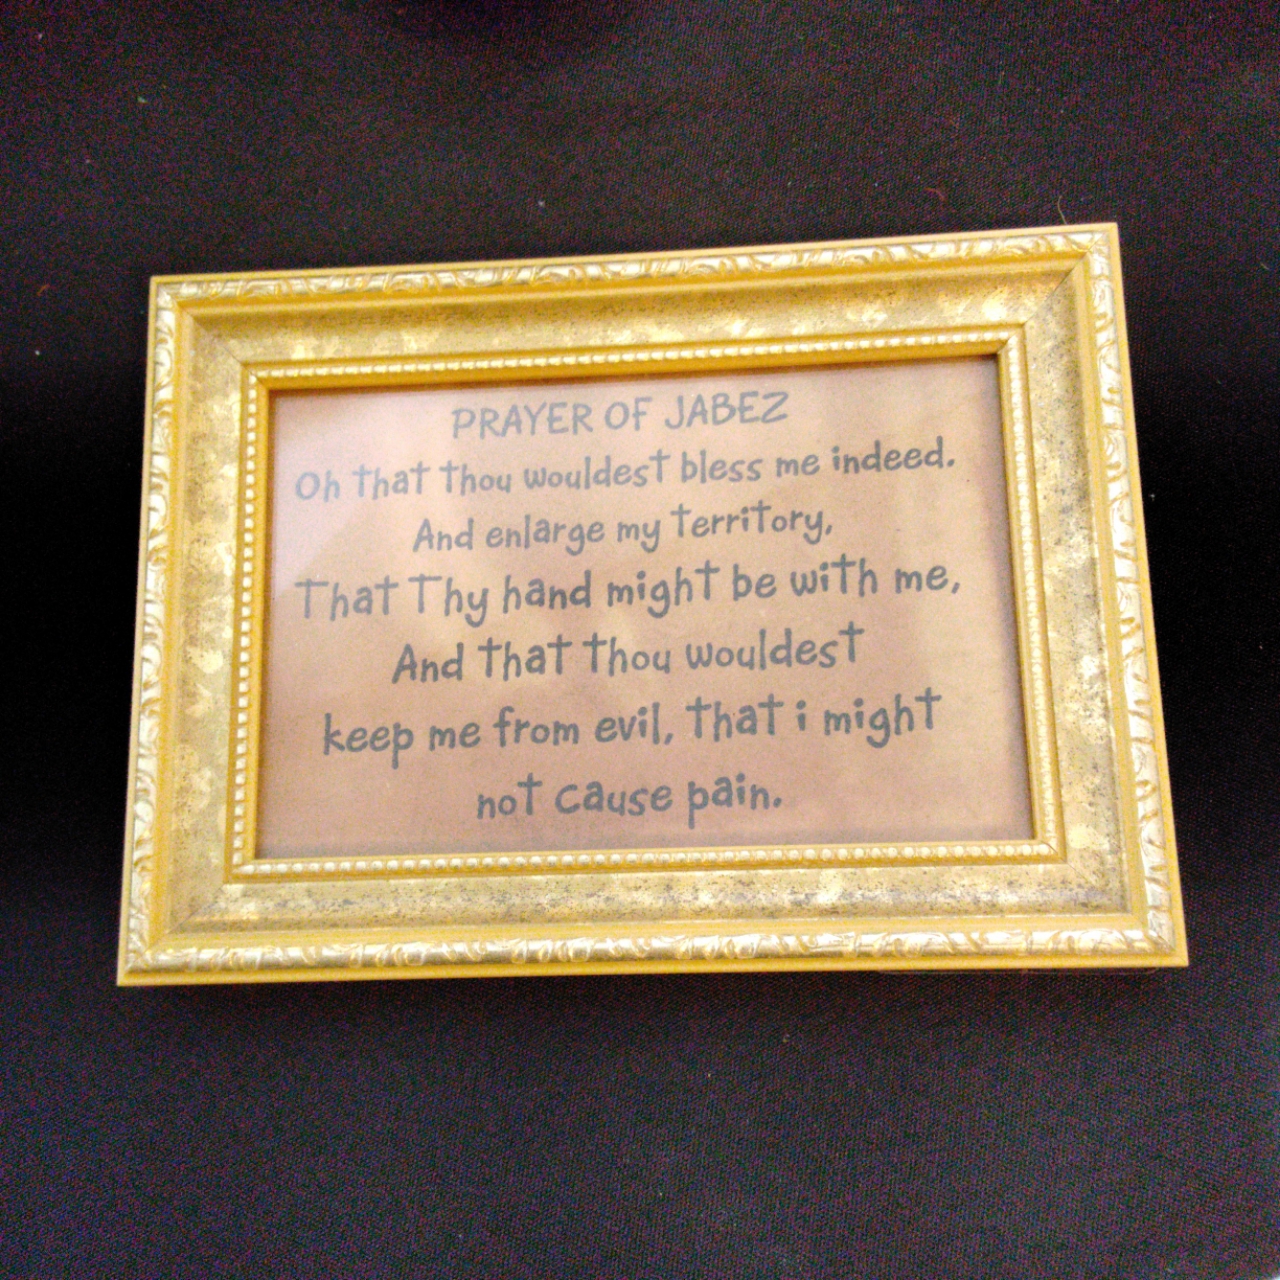 PRAYER OF JABEZ
Oh that thou wouldest bless me indeed.
And enlarge my territory,
That Thy hand might be with me,
And that thou wouldest
keep me from evil, that i might
not cause pain.